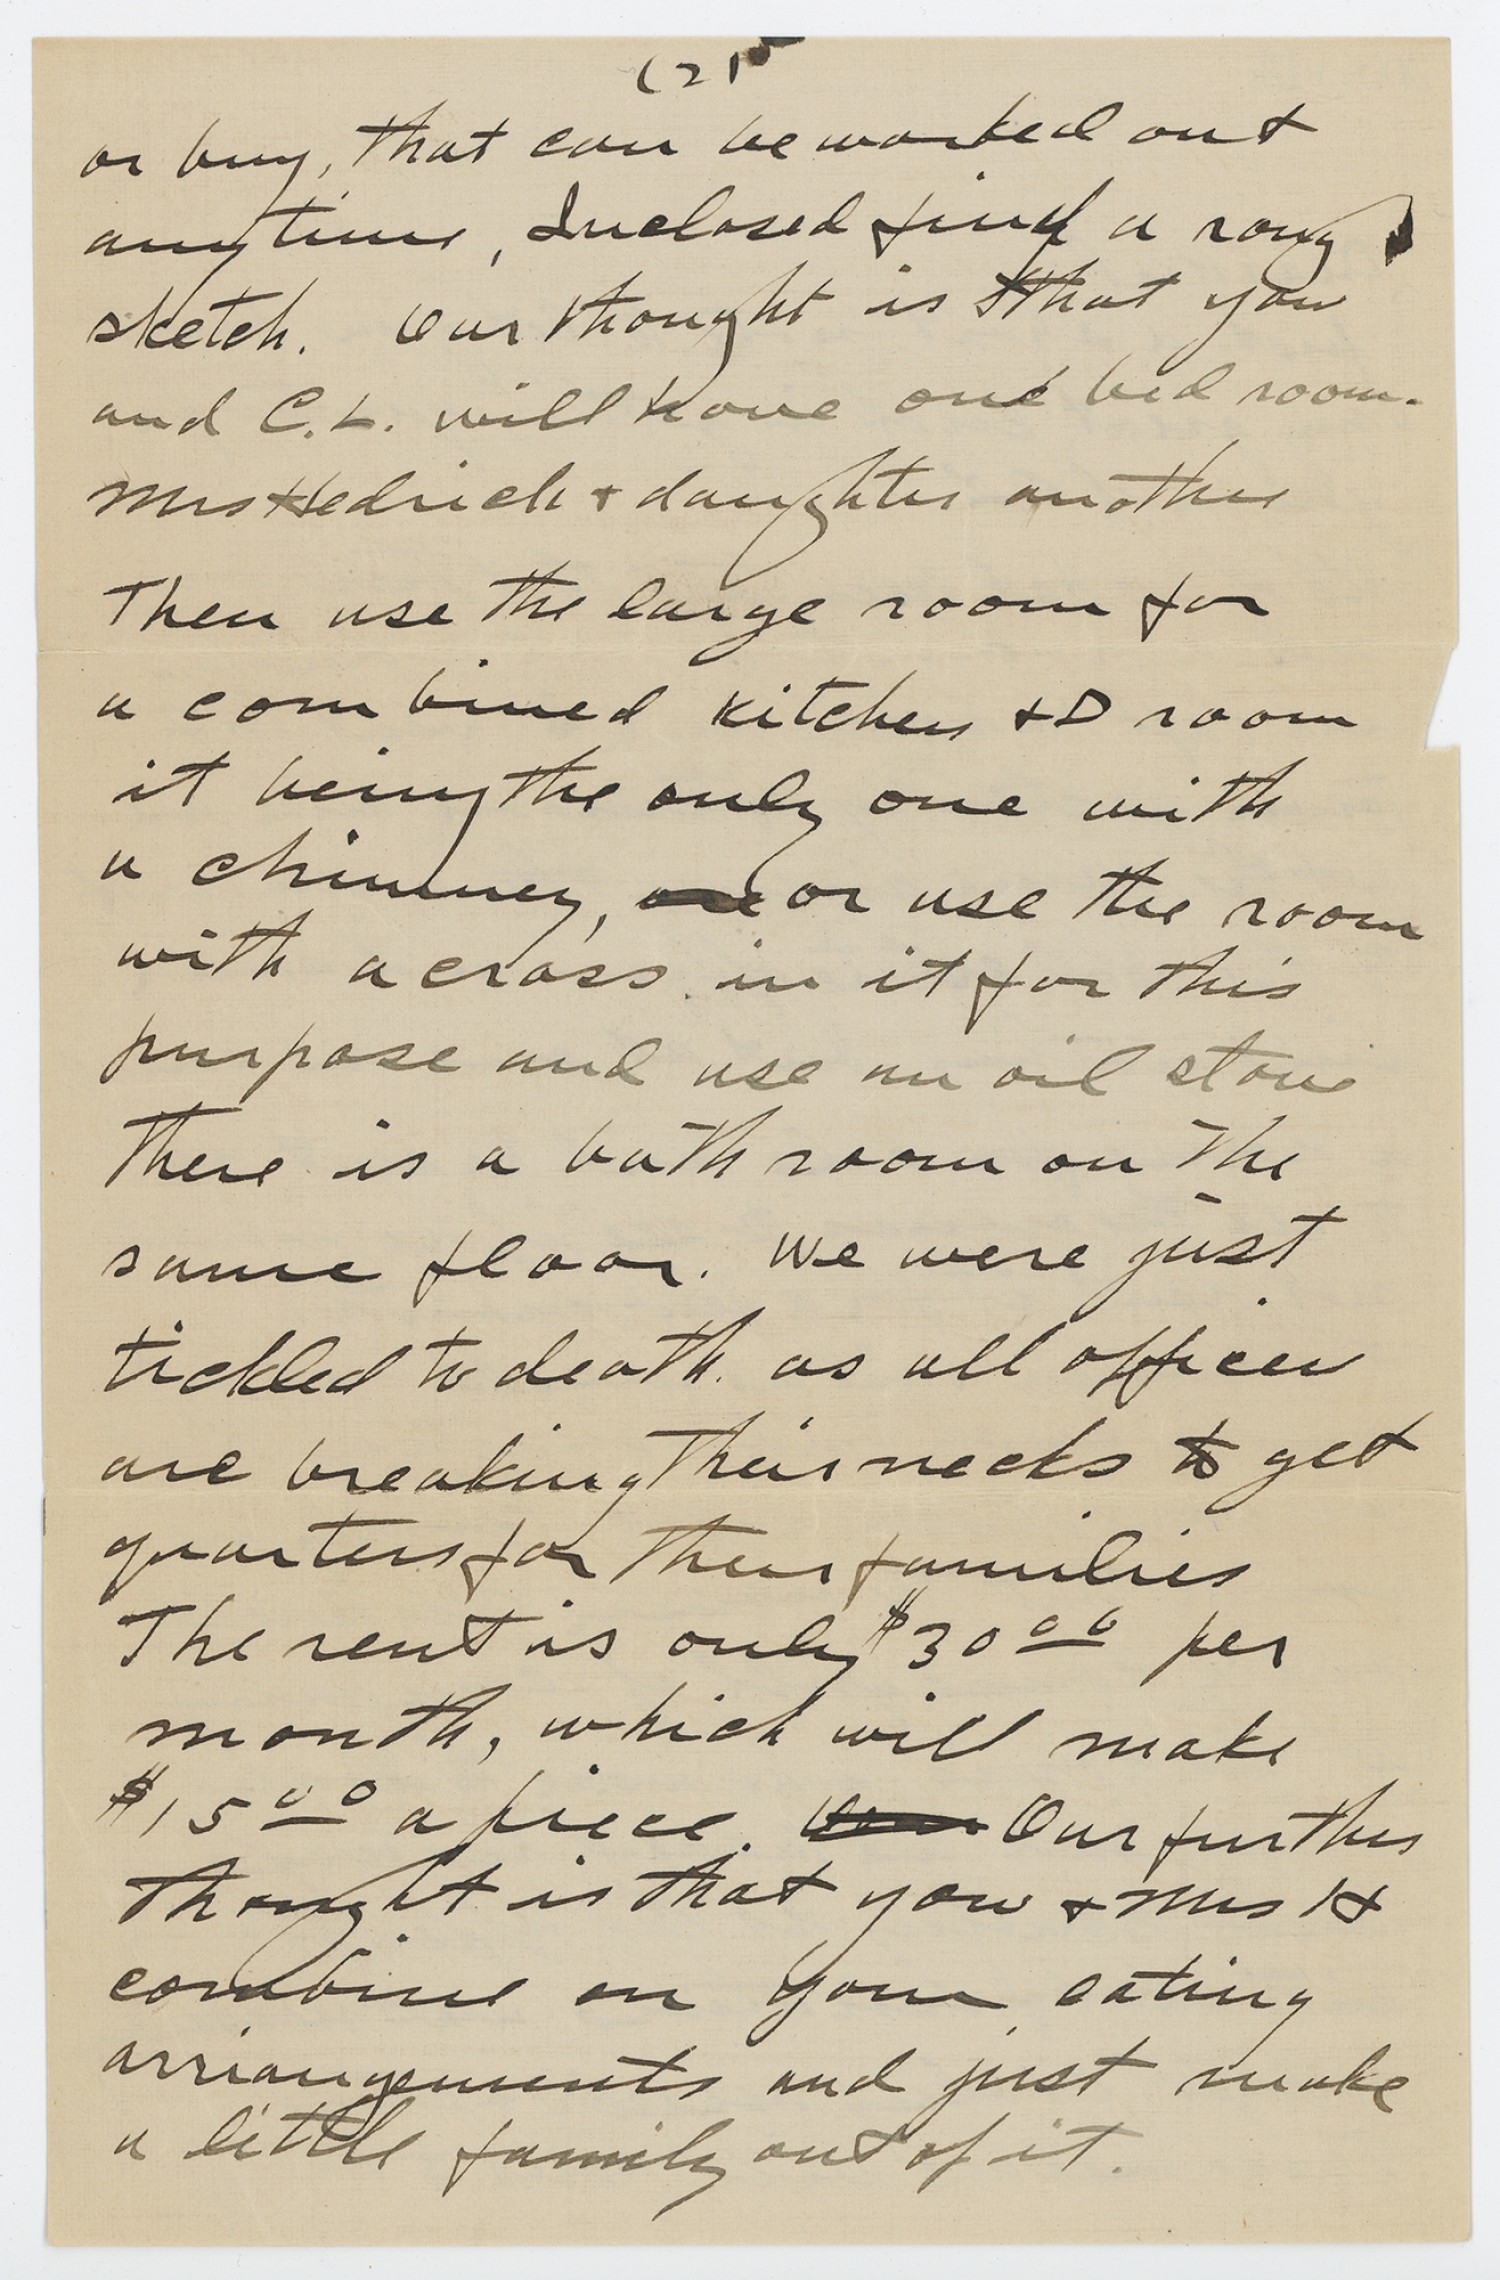 (2)
or buy, that can be worked out
anytime, Inclosed find a roug
sketch. Our thought is that you
and C.L. will have one bed room.
Mrs Hedrick + daughter another
Then use the large room for
a combined kitchen + D room
it being the only one with
a chimney, or use the room
with a cross in it for this
purpose and use an oil stove
There is a bath room on the
same floor. We were just
tickled to death. as all officers
are breaking their necks to get
quarters for their families
The rent is only $30.00 per
month, which will make
$15.00 a piece. Our further
thought is that you + Mrs H
combine on your eating
arriangements and just make
a little family out of it.